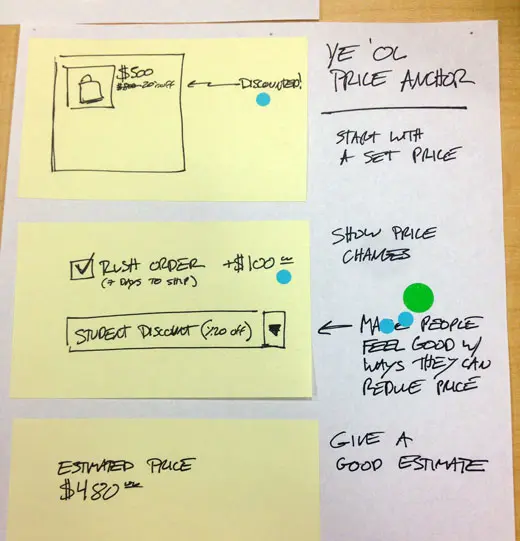 $500
20% off
DISCOUNTED!
YE 'OL
PRICE ANCHOR
START WITH
A SET PRICE
RUSH ORDER +$100 00
(7 DAYS TO SHIP)
STUDENT DISCOUNT (%20 off)
SHOW PRICE
CHANGES
MAKE PEOPLE
FEEL GOOD W/
WAYS THEY CAN
REDUCE PRICE
ESTIMATED PRICE
$480
GIVE A
GOOD ESTIMATE